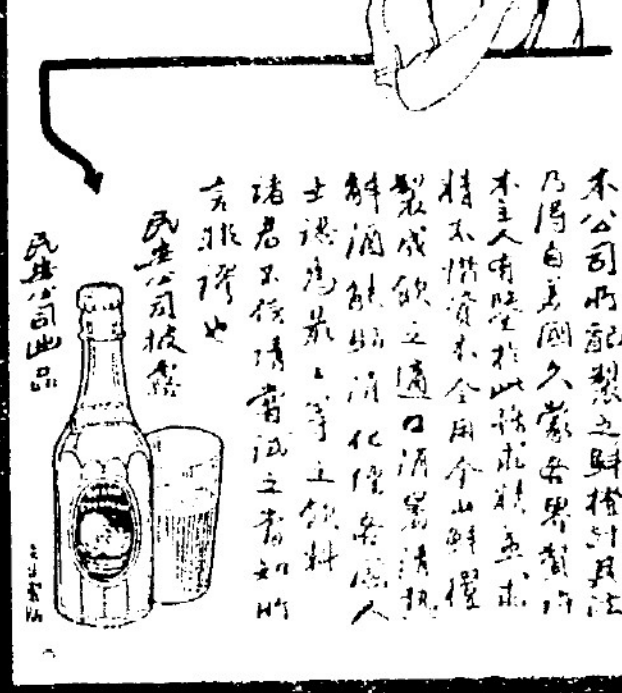 本公司所配製之鮮橙汁其法
乃得自美國久蒙各界贊許
本主人有鑒於此誅求精益求
精不惜資本全用金山鮮橙
製成飲之適口消暑清熱
解酒能助消化經各屬人
士認為最上等之飲料
諸君不信請嘗試之當知所
言非謬也
民安公司披露
民安公司出品